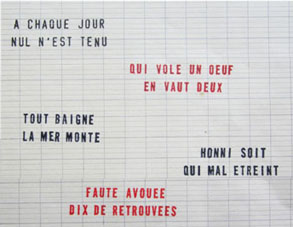 A CHAQUE JOUR
NUL N'EST TENU
QUI VOLE UN OEUF
EN VAUT DEUX
TOUT BAIGNE
LA MER MONTE
HONNI SOIT
QUI MAL ETREINT
FAUTE AVOUEE
DIX DE RETROUVEES